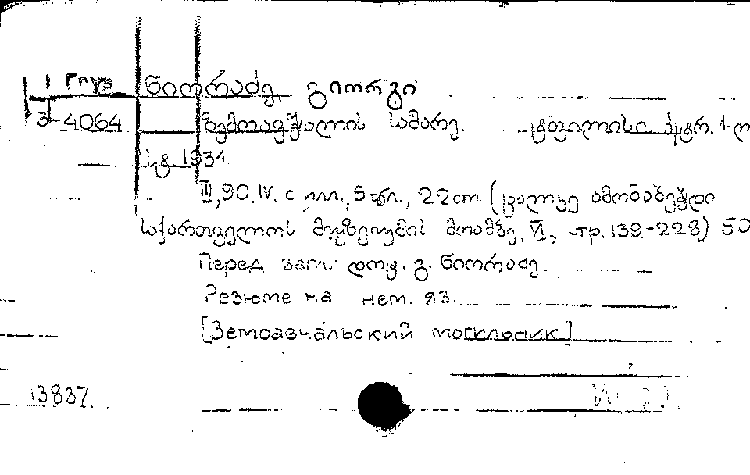 Груз ნიორაძე გიორგი
3-4064 ზემოავჭალის სამარე. ტფილისი
1931.
II, 90, IV. с илл., 5 22 cm. (ცალკე ამონაბეჭდი
საქართველოს მუზეუმის მოამბე, VI, 139-228) 50
Перед загл. დოც. გ. ნიორაძე.
Резюме на нем. яз.
[Земоавчальский могильник]
13837.